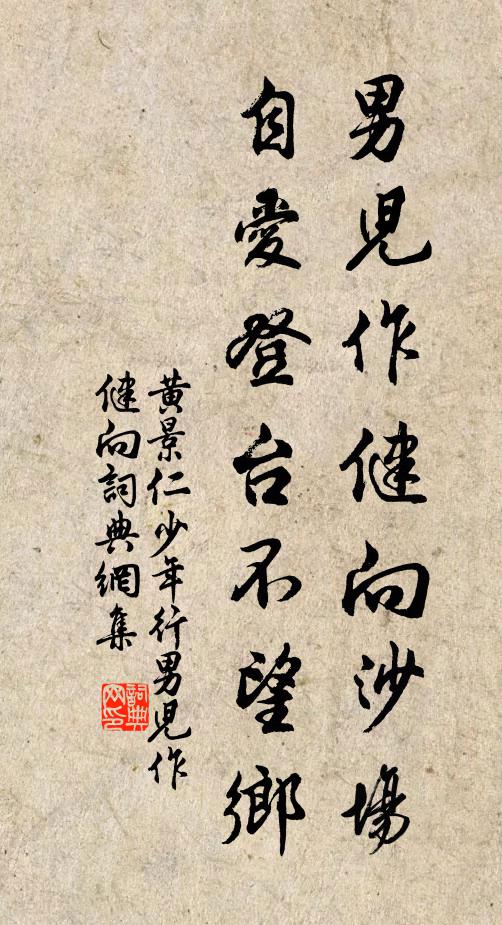 男兒作健向沙場
自愛登台不望鄉
黃景仁少年行男兒作
健向詞典網集
詞典
网印